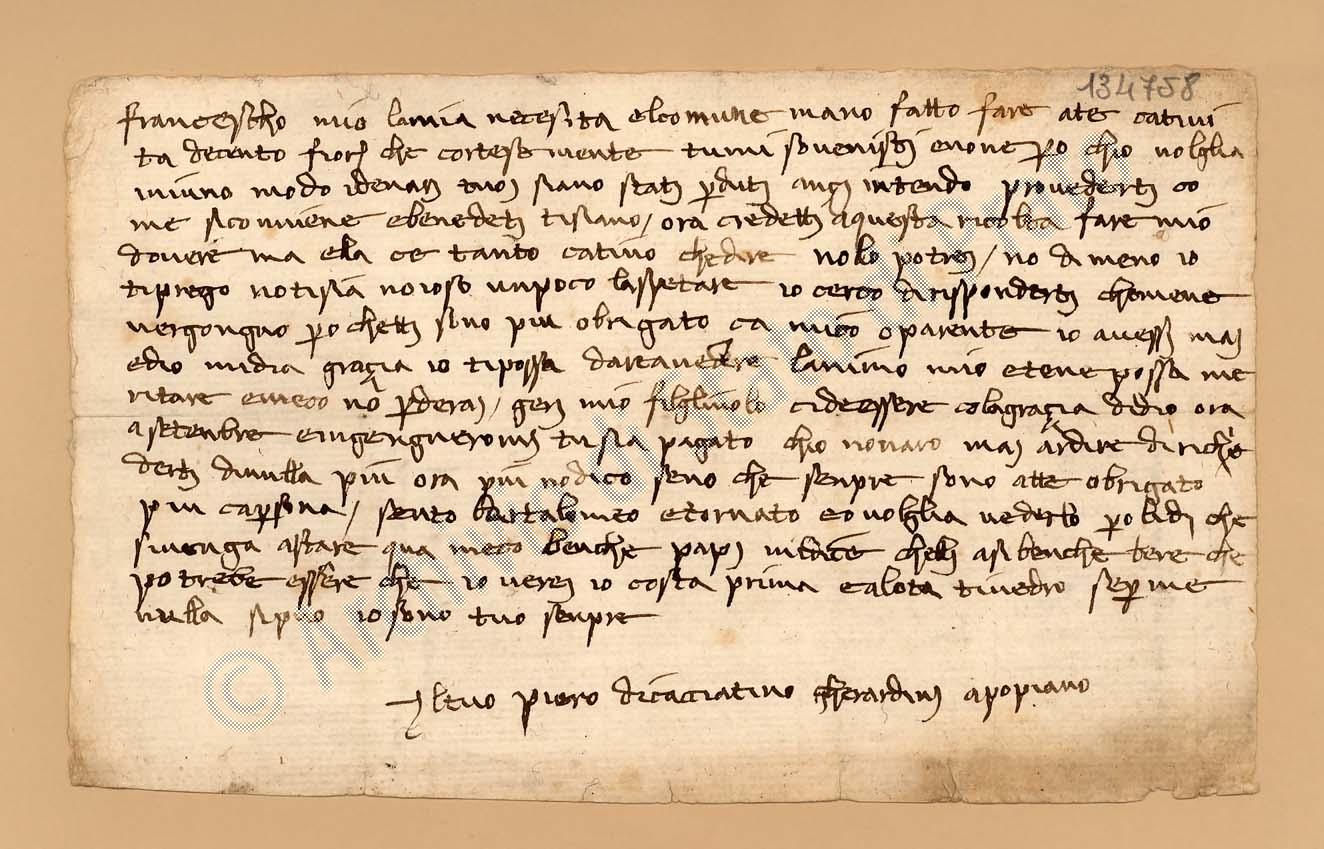 134758
francescho mio lamia necesita elcomune mano fatto fare ate cativi
ta deciento fiorj che cortesemente tumi sovenisti enone po chio volglia
iniuno modo idenarj tuoj siano stati pduti anzi intendo provederti co
me siconviene ebenedetj tisiano / ora credetti aquesta ricolta fare mio
dovere ma ela ce tanto cativo chedire nolo potrej / no dimeno io
tiprego notisia noioso unpoco lasspetare io cerco dirisponderti chemene
vergongno po chetti sono piu obrigato ca amico oparente io avessi maj
edio midia grazia io tipossa dareavedere lanimo mio etene possa me
ritare emeco nō pderaj / gerj mio filglivolo cideessere colagrazia didio ora
asetenbre tusia pagato chio nonaro maj ardire diriche
derti dinulla piu ora piu nodico seno che senpre sono atte obrigato
piu capsona / sento bartalomeo etornato eovolglia vederlo po lidj che
sivenga astare qua meco benche papi chetti asibenche bere che
potrebe essere che io verej io costa prima calota tivedro sepme
nulla sipuo io sono tuo senpre
Iltuo piero dicacciatino gherardinj apopiano
© Archivio di Stato di Prato